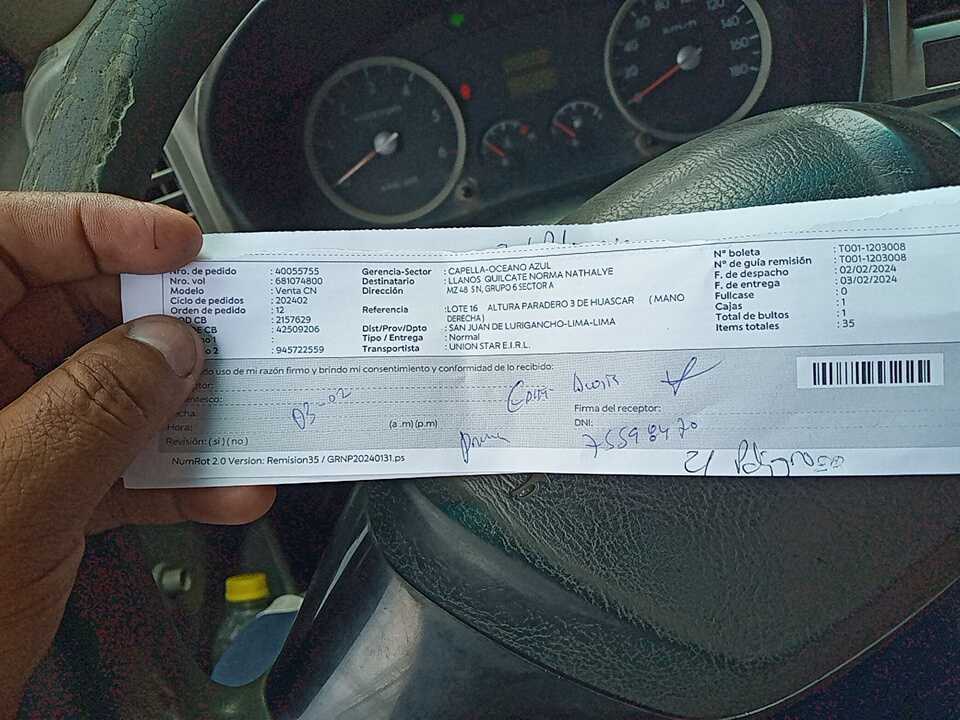 Nro. de pedido : 40055755
Nro. vol : 681074800
Modelo : Venta CN
Ciclo de pedidos : 202402
Orden de pedido : 12
CB : 2157629
CB : 42509206
1 :
2 : 945722559
Gerencia-Sector : CAPELLA-OCEANO AZUL
Destinatario : LLANOS QUILCATE NORMA NATHALYE
Dirección : MZ 48 SN, GRUPO 6 SECTOR A
Referencia : LOTE 16 ALTURA PARADERO 3 DE HUASCAR (MANO
DERECHA)
Dist/Prov/Dpto : SAN JUAN DE LURIGANCHO-LIMA-LIMA
Tipo / Entrega : Normal
Transportista : UNION STAR E.I.R.L.
N° boleta : T001-1203008
N° de guía remisión : T001-1203008
F. de despacho : 02/02/2024
F. de entrega : 03/02/2024
Fullcase : 0
Cajas : 1
Total de bultos : 1
Items totales : 35
uso de mi razón firmo y brindo mi consentimiento y conformidad de lo recibido:
Fecha: 03-02
Hora: (a.m) (p.m)
Revisión: ( si ) ( no )
prima
Firma del receptor:
DNI: 75598470
NumRot 2.0 Version: Remision35 / GRNP20240131.ps